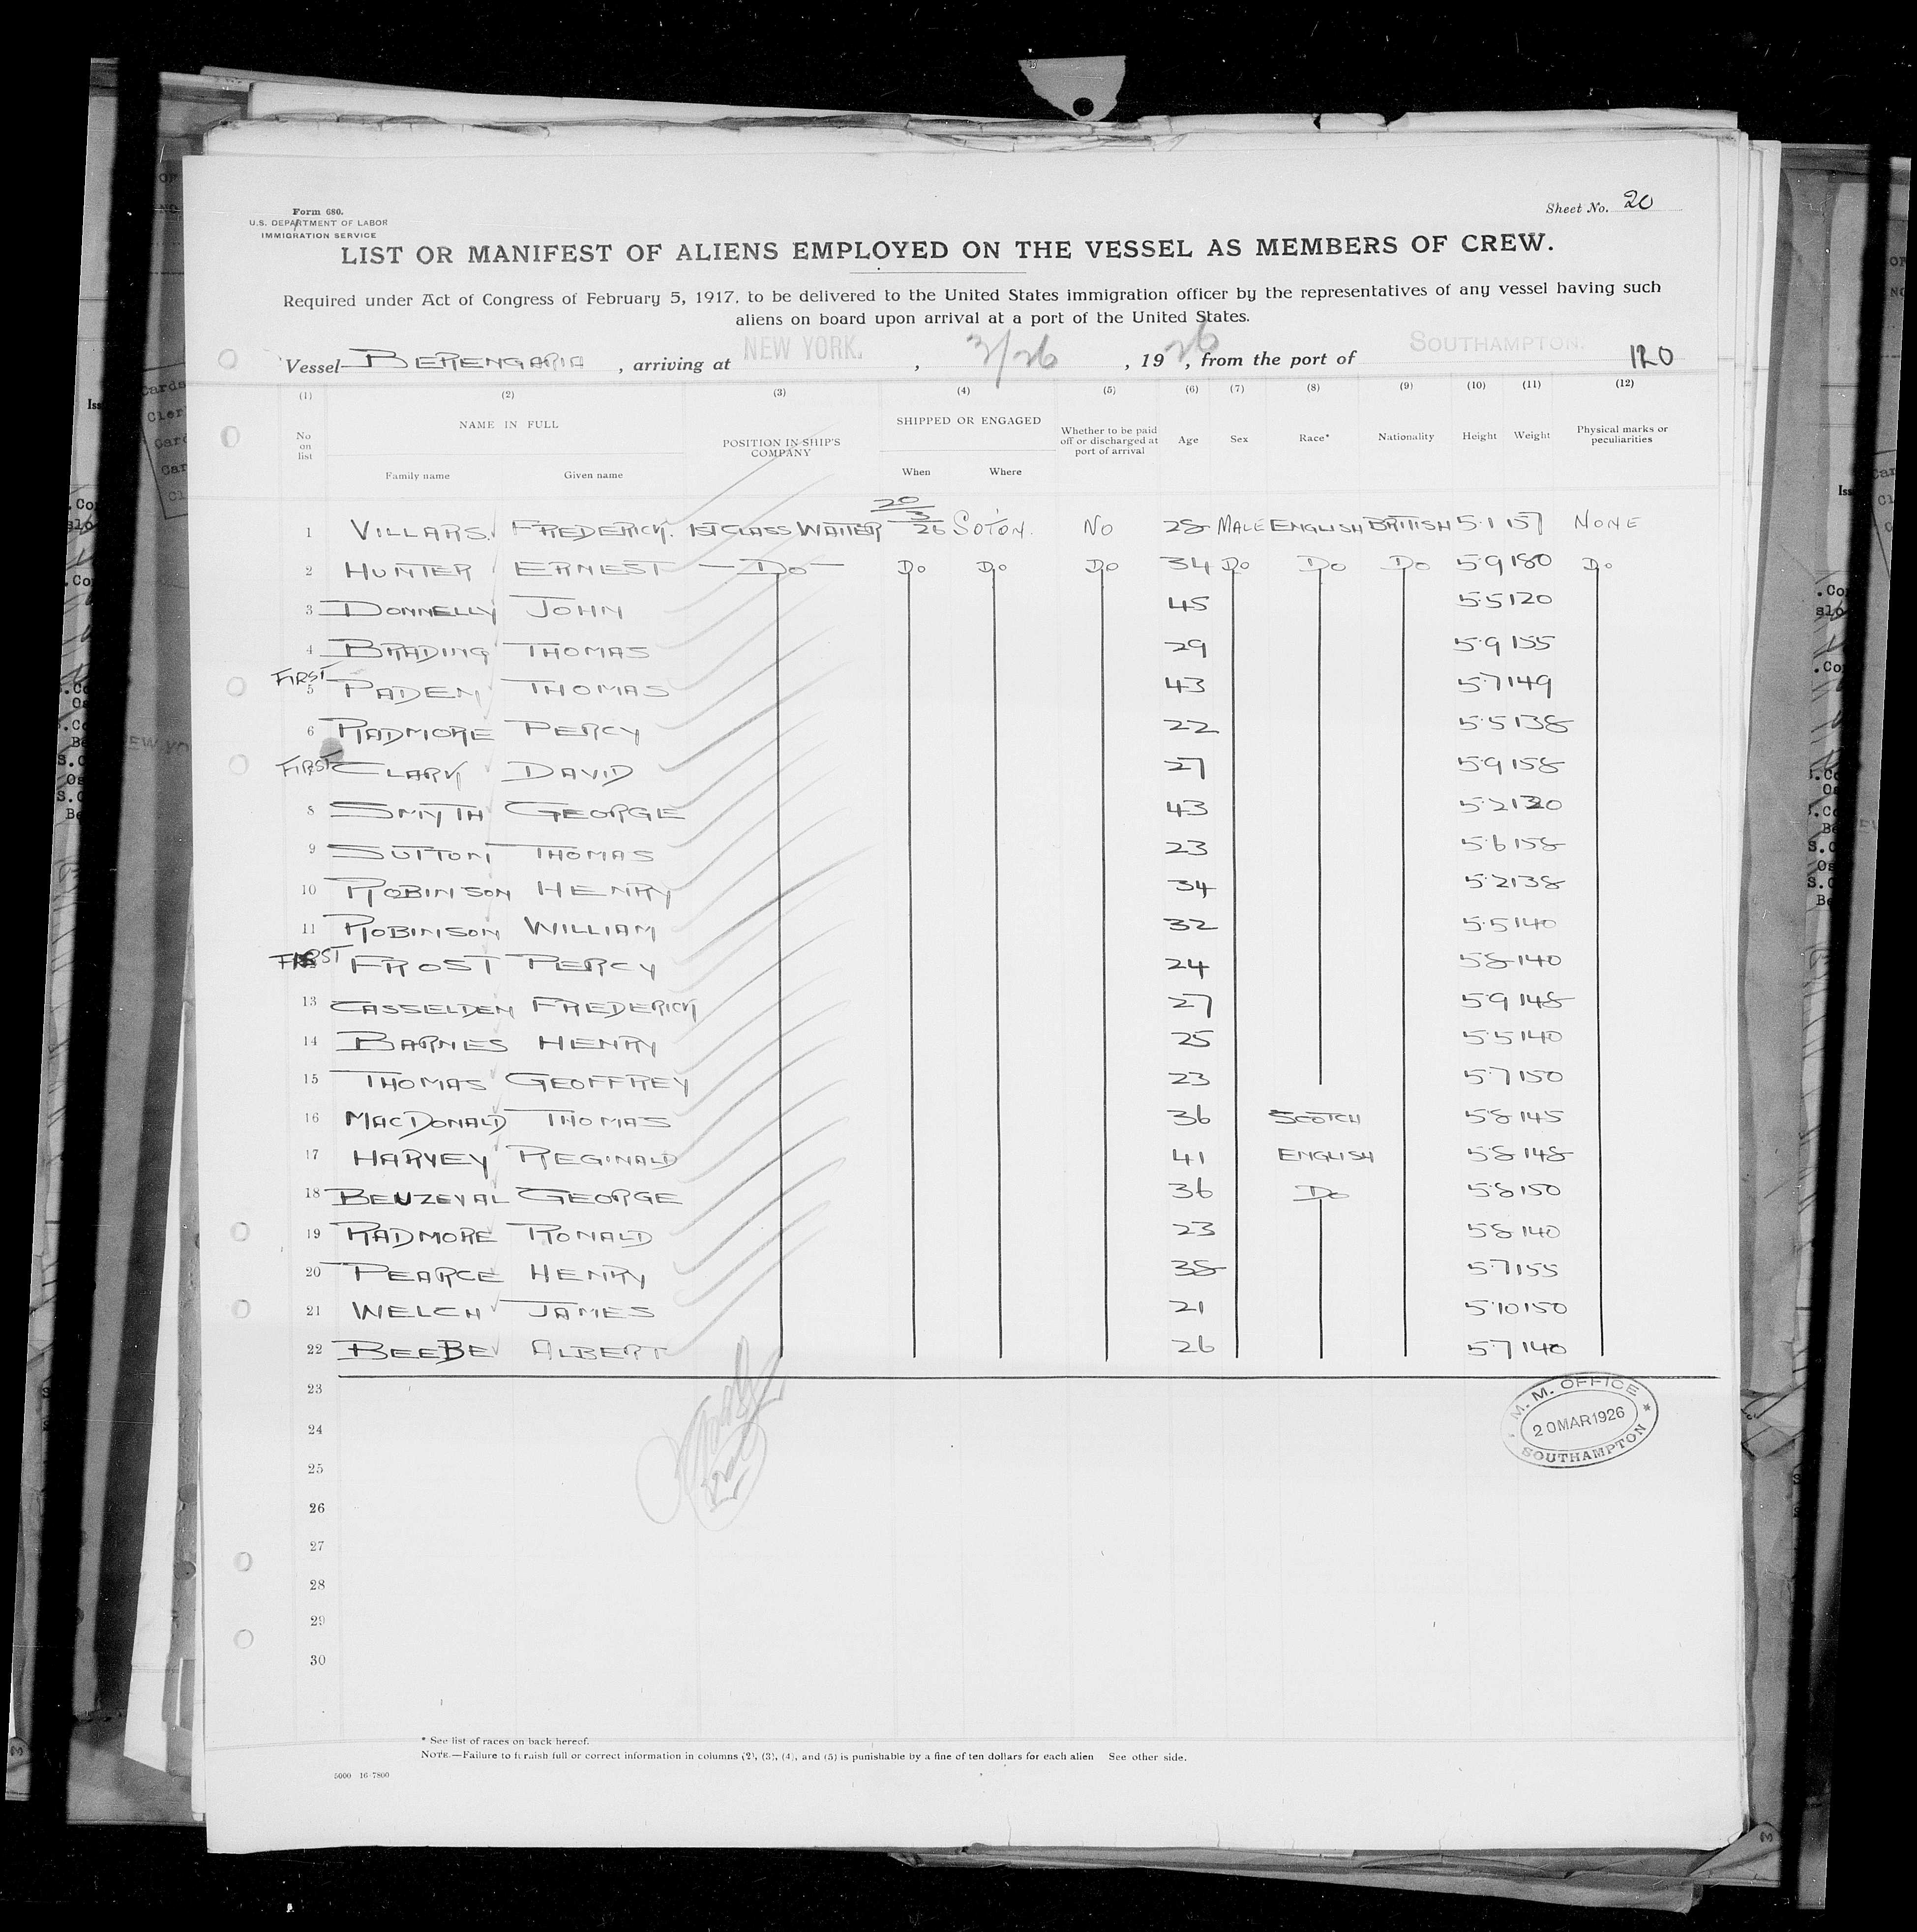 Form 680.
U.S. DEPARTMENT OF LABOR
IMMIGRATION SERVICE
Sheet No. 20
LIST OR MANIFEST OF ALIENS EMPLOYED ON THE VESSEL AS MEMBERS OF CREW.
Required under Act of Congress of February 5, 1917, to be delivered to the United States immigration officer by the representatives of any vessel having such
aliens on board upon arrival at a port of the United States.
Vessel BERENGARIA, arriving at NEW YORK, 3/26, 1926, from the port of SOUTHAMPTON. 120
(1) (2) (3) (4) (5) (6) (7) (8) (9) (10) (11) (12)
No on list NAME IN FULL Family name Given name POSITION IN SHIP'S COMPANY SHIPPED OR ENGAGED When Where Whether to be paid off or discharged at port of arrival Age Sex Race* Nationality Height Weight Physical marks or peculiarities
1 VILLARS. FREDERICK. 1ST CLASS WAITER 20/3/26 SOTON. NO 28 MALE ENGLISH BRITISH 5.1 157 NONE
2 HUNTER ERNEST — DO — DO DO DO 34 DO DO DO 5.9 180 DO
3 DONNELLY JOHN 45 5.5 120
4 BRADING THOMAS 29 5.9 155
FIRST 5 PADEN THOMAS 43 5.7 149
6 RADMORE PERCY 22 5.5 138
FIRST CLARK DAVID 27 5.9 158
8 SMYTH GEORGE 43 5.2 120
9 SUTTON THOMAS 23 5.6 158
10 ROBINSON HENRY 34 5.2 138
11 ROBINSON WILLIAM 32 5.5 140
FIRST FROST PERCY 24 5.8 140
13 CASSELDEN FREDERICK 27 5.9 148
14 BARNES HENRY 25 5.5 140
15 THOMAS GEOFFREY 23 5.7 150
16 MACDONALD THOMAS 36 SCOTCH 5.8 145
17 HARVEY REGINALD 41 ENGLISH 5.8 148
18 BEUZEVAL GEORGE 36 DO 5.8 150
19 RADMORE RONALD 23 5.8 140
20 PEARCE HENRY 38 5.7 155
21 WELCH JAMES 21 5.10 150
22 BEEBE ALBERT 26 5.7 140
23
24
25
26
27
28
29
30
M. M. OFFICE
20 MAR 1926
SOUTHAMPTON
* See list of races on back hereof.
NOTE.—Failure to furnish full or correct information in columns (2), (3), (4), and (5) is punishable by a fine of ten dollars for each alien See other side.
5000 16-7800